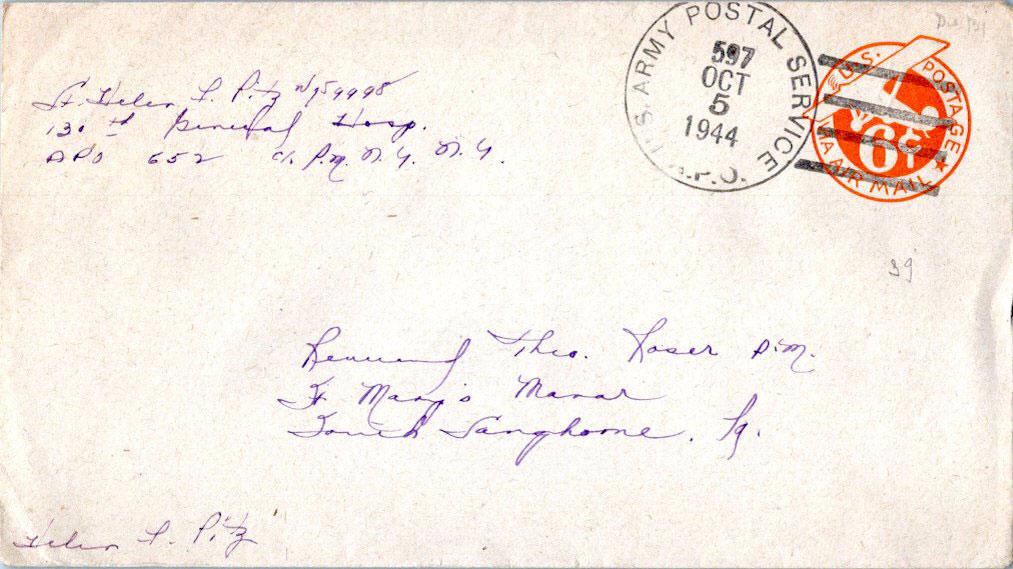 Lt. Helen L. Pitz N759998
130th General Hosp.
APO 652 c/o P.M. N.Y. N.Y.
U.S. ARMY POSTAL SERVICE
597
OCT
5
1944
A.P.O.
U.S. POSTAGE
6¢
VIA AIR MAIL
39
Reverend Theo. Roser
St Mary's Manor
South Langhorne. Pa.
Helen L. Pitz